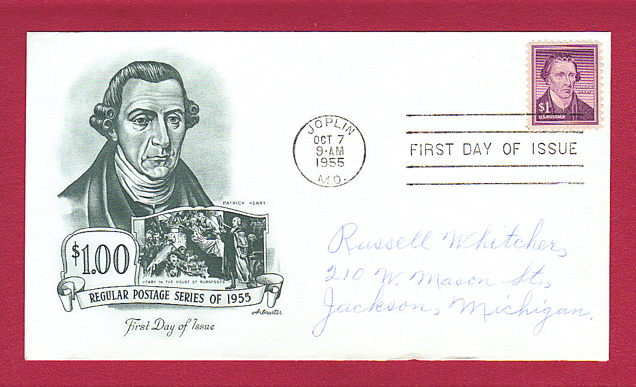 $1
PATRICK HENRY
U.S. POSTAGE
JOPLIN
OCT 7
9-AM
1955
MO.
FIRST DAY OF ISSUE
PATRICK HENRY
$1.00
HENRY IN THE HOUSE OF BURGESSES
REGULAR POSTAGE SERIES OF 1955
Artmaster
First Day of Issue
Russell Whitcher,
210 W. Mason St.,
Jackson, Michigan.